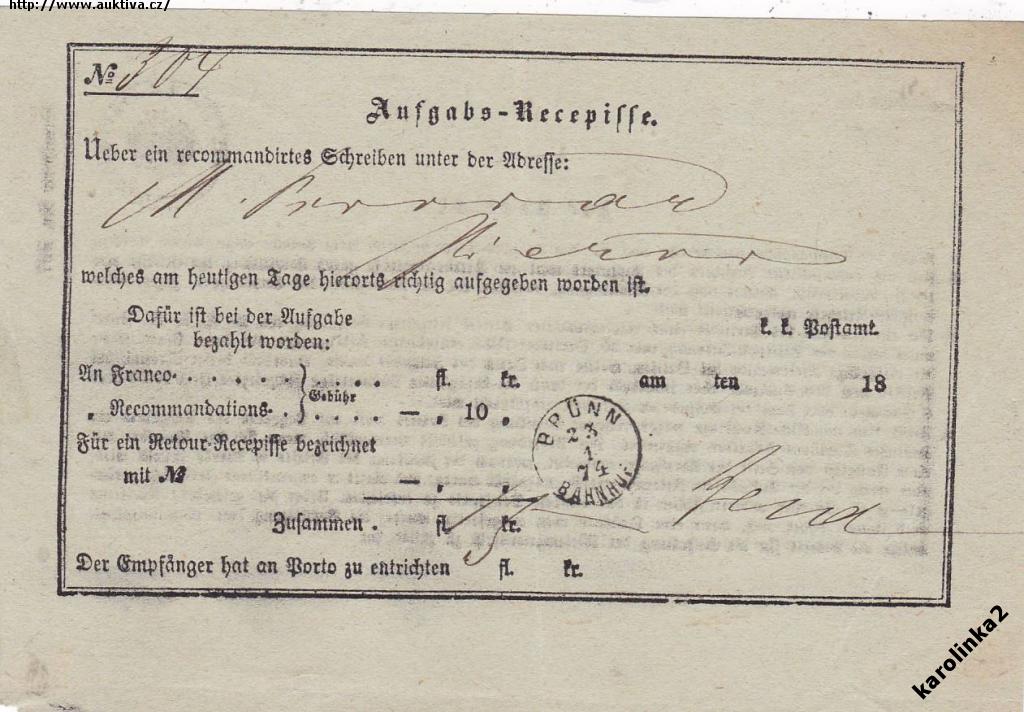 http://www.auktiva.cz/
№ 304
Aufgabs-Recepisse.
Ueber ein recommandirtes Schreiben unter der Adresse:
M.
Wien
welches am heutigen Tage hierorts richtig aufgegeben worden ist.
Dafür ist bei der Aufgabe
bezahlt worden:
k. k. Postamt.
An Franco. . . . . . } Gebühr . . . . fl. kr. am ten 18
„ Recommandations. . . . . . — „ 10 „
Für ein Retour-Recepisse bezeichnet
mit № — „ „
Zusammen . fl. kr.
Der Empfänger hat an Porto zu entrichten fl. kr.
BRÜNN
23
1
74
BAHNHOF
karolinka2